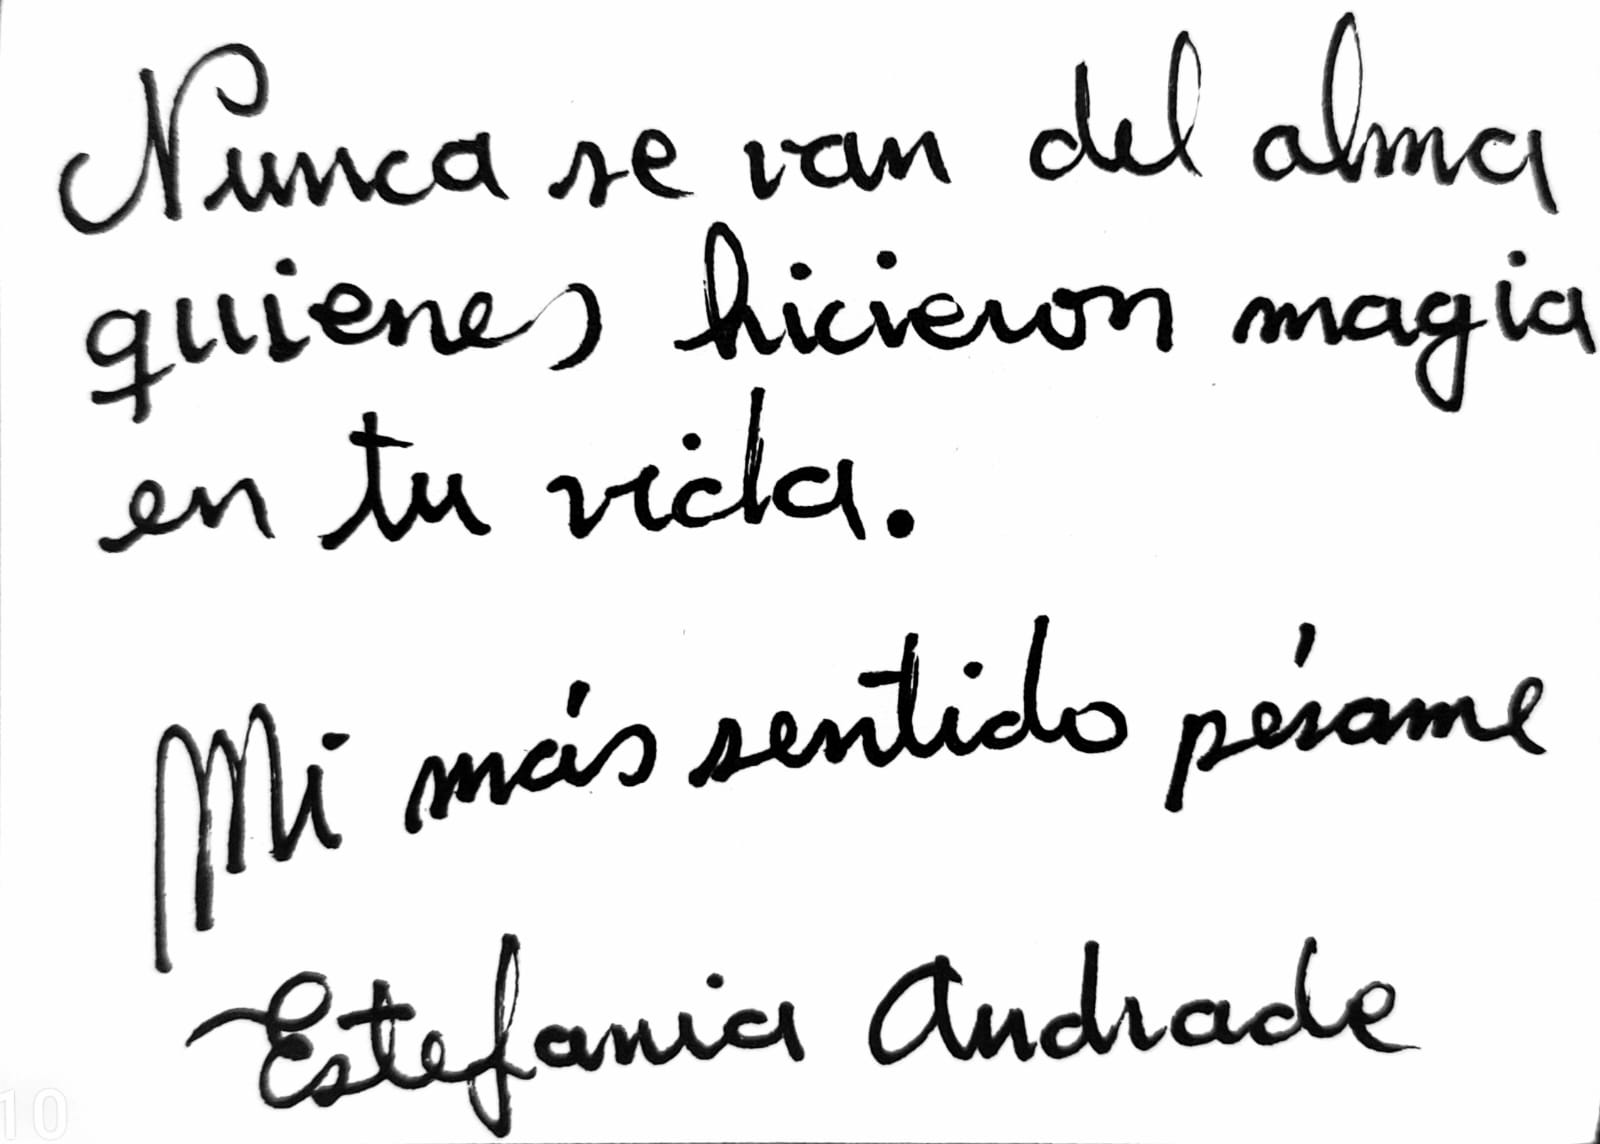 Nunca se van del alma
quienes hicieron magia
en tu vida.
Mi más sentido pésame
Estefania Andrade
10